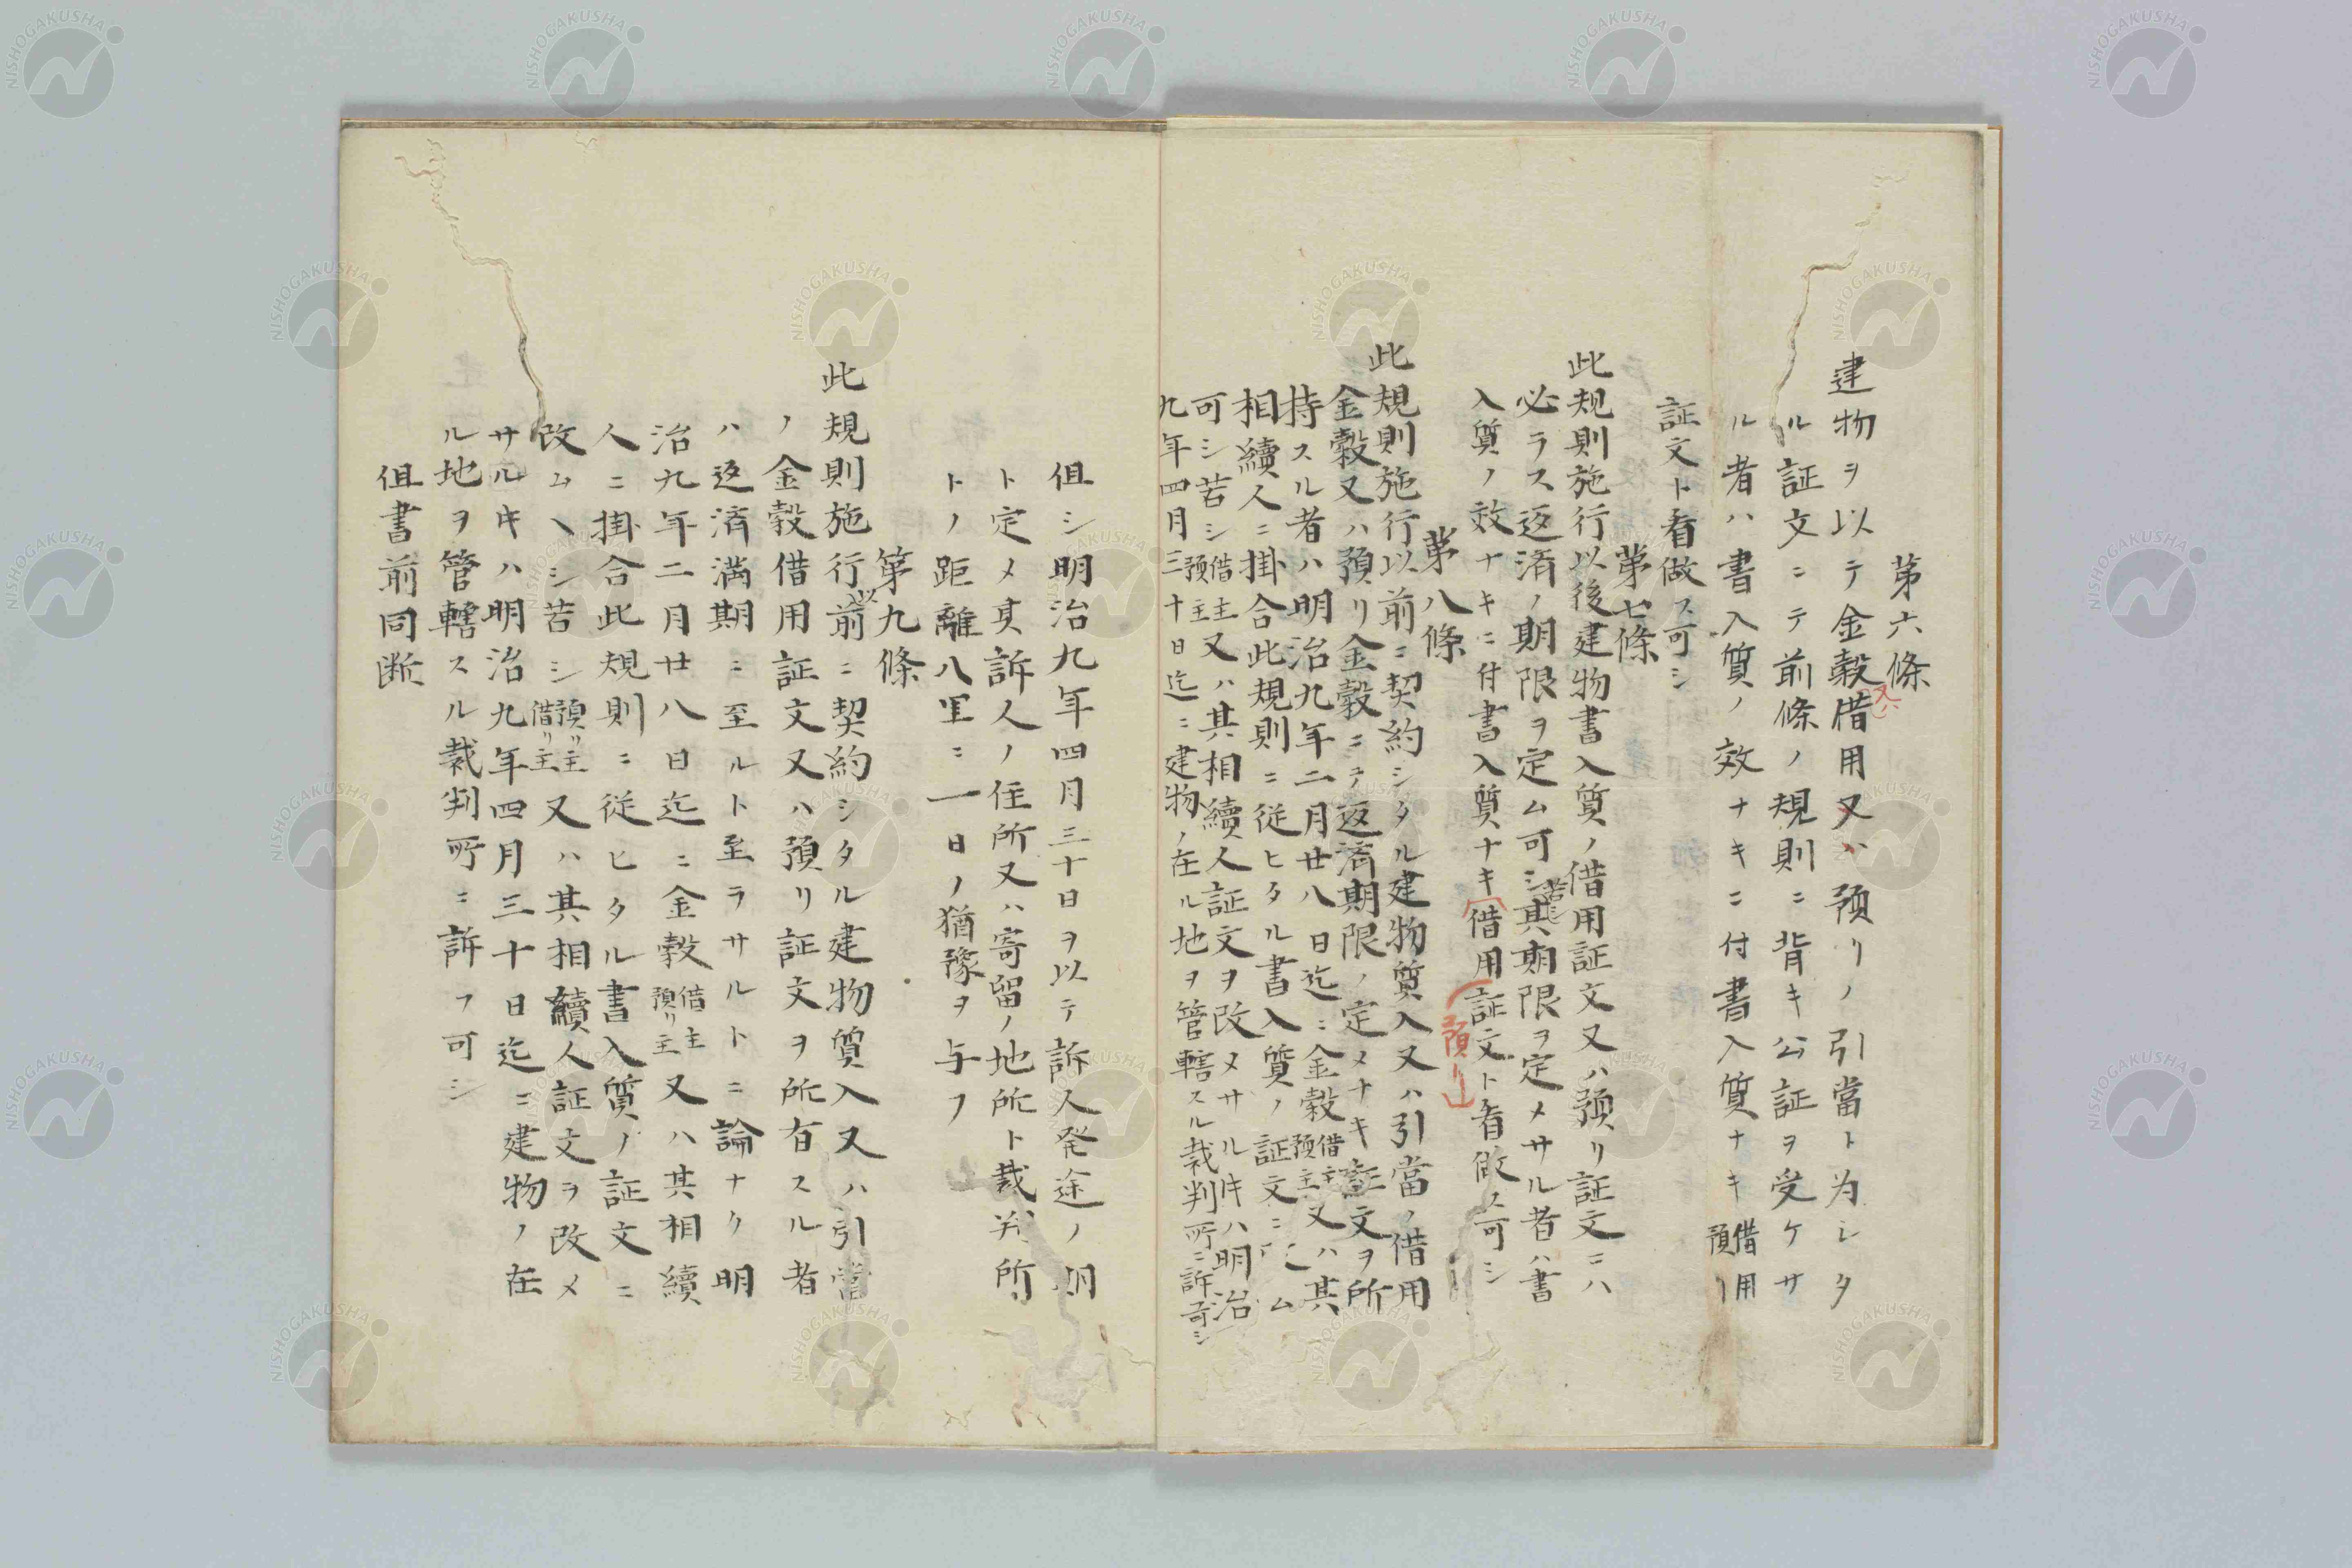 第六條
建物ヲ以テ金穀借用又ハ預リノ引當ト为シタ
又ハ
ル証文ニテ前條ノ規則ニ背キ公証ヲ受ケサ
ル者ハ書入質ノ效ナキニ付書入質ナキ借用預リ
証文ト看做ス可シ
第七條
此規則施行以後建物書入質ノ借用証文又ハ預リ証文ニハ
必ラス返済ノ期限ヲ定ム可シ若シ其期限ヲ定メサル者ハ書
入質ノ效ナキニ付書入質ナキ借用証文ト看做ス可シ
預リ
第八條
此規則施行以前ニ契約シタル建物質入又ハ引當ノ借用
金穀又ハ預リ金穀ニテ返済期限ノ定メナキ証文ヲ所
持スル者ハ明治九年二月廿八日迄ニ金穀借主預主又ハ其
相續人ニ掛合此規則ニ従ヒタル書入質ノ証文ニム
可シ若シ借主預主又ハ其相續人証文ヲ改メサルキハ明治
九年四月三十日迄ニ建物ノ在ル地ヲ管轄スル裁判所ニ訴可シ
但シ明治九年四月三十日ヲ以テ訴人発途ノ期
ト定メ其訴人ノ住所又ハ寄留ノ地所ト裁判所
トノ距離八里ニ一日ノ猶豫ヲ与フ
第九條
此規則施行以前ニ契約シタル建物質入又ハ引當
ノ金穀借用証文又ハ預リ証文ヲ所有スル者
ハ返済満期ニ至ルト至ラサルトニ論ナク明
治九年二月廿八日迄ニ金穀借主預リ主又ハ其相續
人ニ掛合此規則ニ従ヒタル書入質ノ証文ニ
改ムヘシ若シ預リ主借リ主又ハ其相續人証文ヲ改メ
サルキハ明治九年四月三十日迄ニ建物ノ在
ル地ヲ管轄スル裁判所ニ訴フ可シ
但書前同断